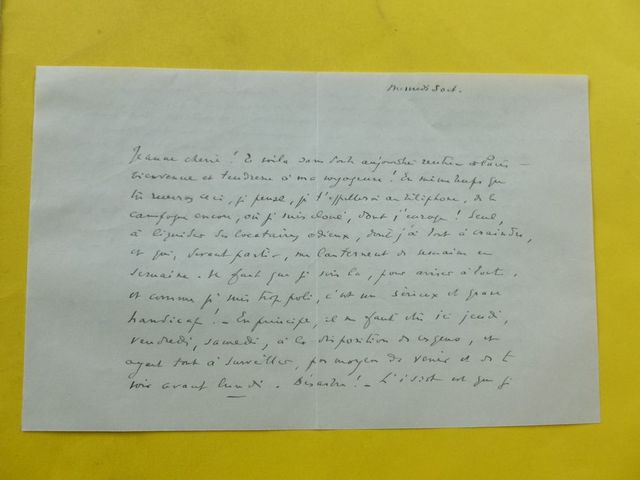 mercredi 8 oct.
Jeanne chérie ! Te voilà sans doute aujourd'hui rentrée à Paris —
bienvenue et tendresse à ma voyageuse ! En même temps que
tu recevras ceci, je pense, je t'appellerai au téléphone, de la
campagne encore, où je suis cloué, dont j'enrage ! Seul,
à liquider des locataires odieux, dont j'ai tout à craindre,
et qui, devant partir, me lanternent de semaine en
semaine. Il faut que je sois là, pour aviser à tout.
et comme je suis trop poli, c'est un sérieux et grave
handicap ! – En principe, il me faut être ici jeudi,
vendredi, samedi, à la disposition de ces gens, et
ayant tout à surveiller, pas moyen de venir et de te
voir avant lundi. Désastre ! – L' est que je